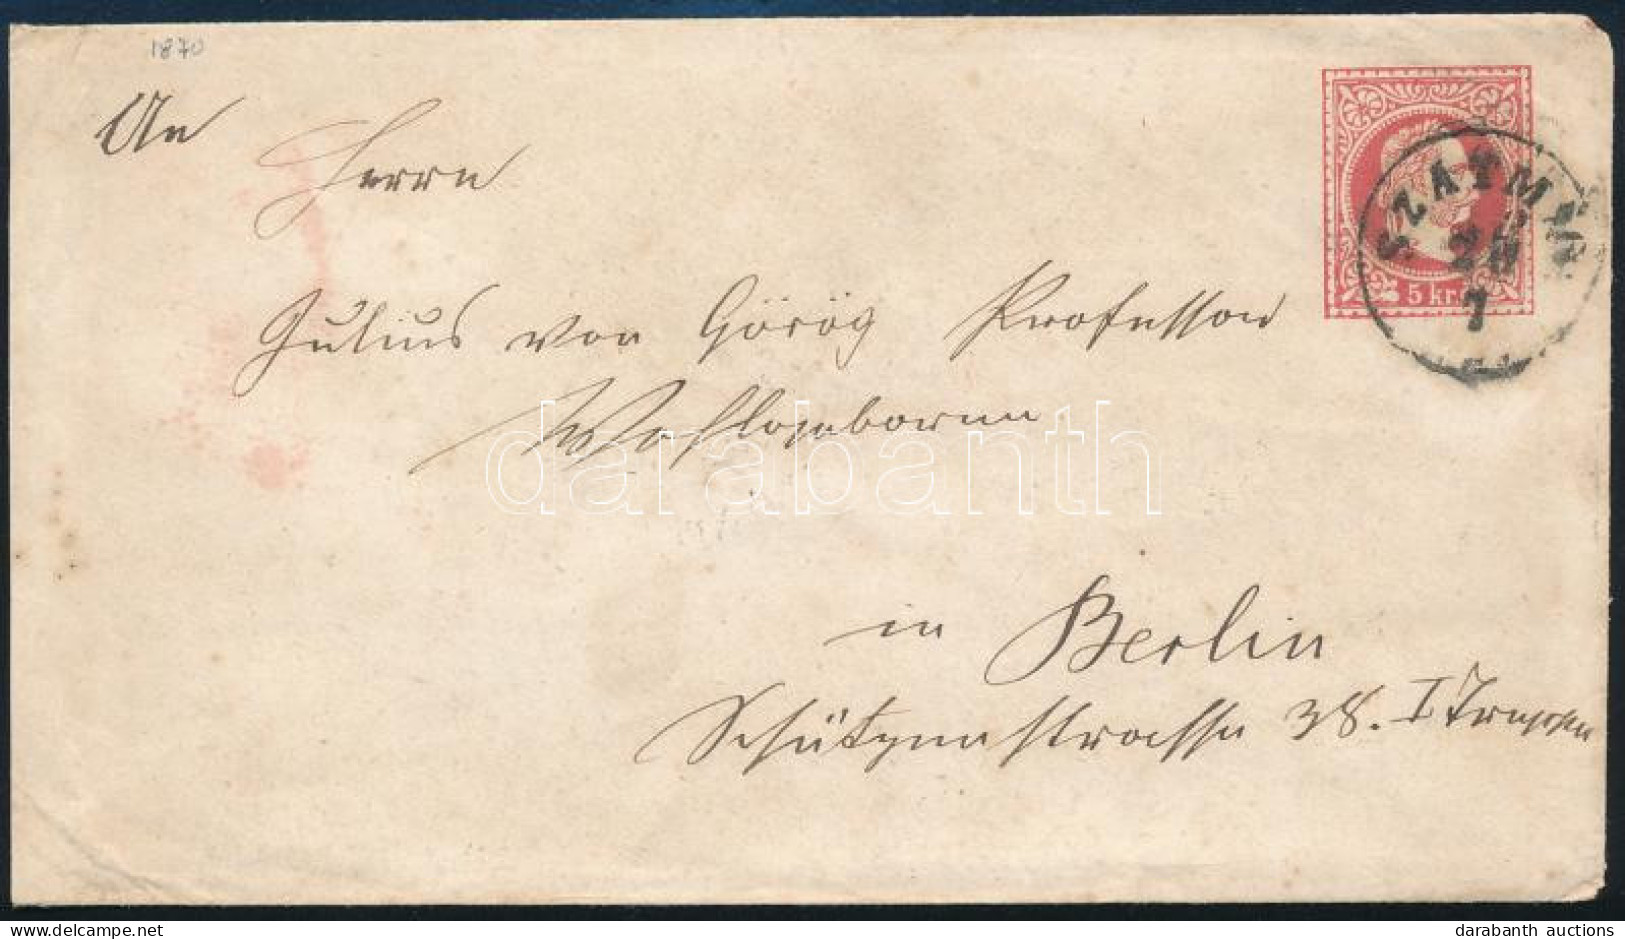 1870
An
Herrn
Julius von Görög Professor
Wohlgeboren
in Berlin
Schützenstrasse 38. I Treppen
SZATMÁR
28
7
5 kr.
darabanth
darabanth auctions